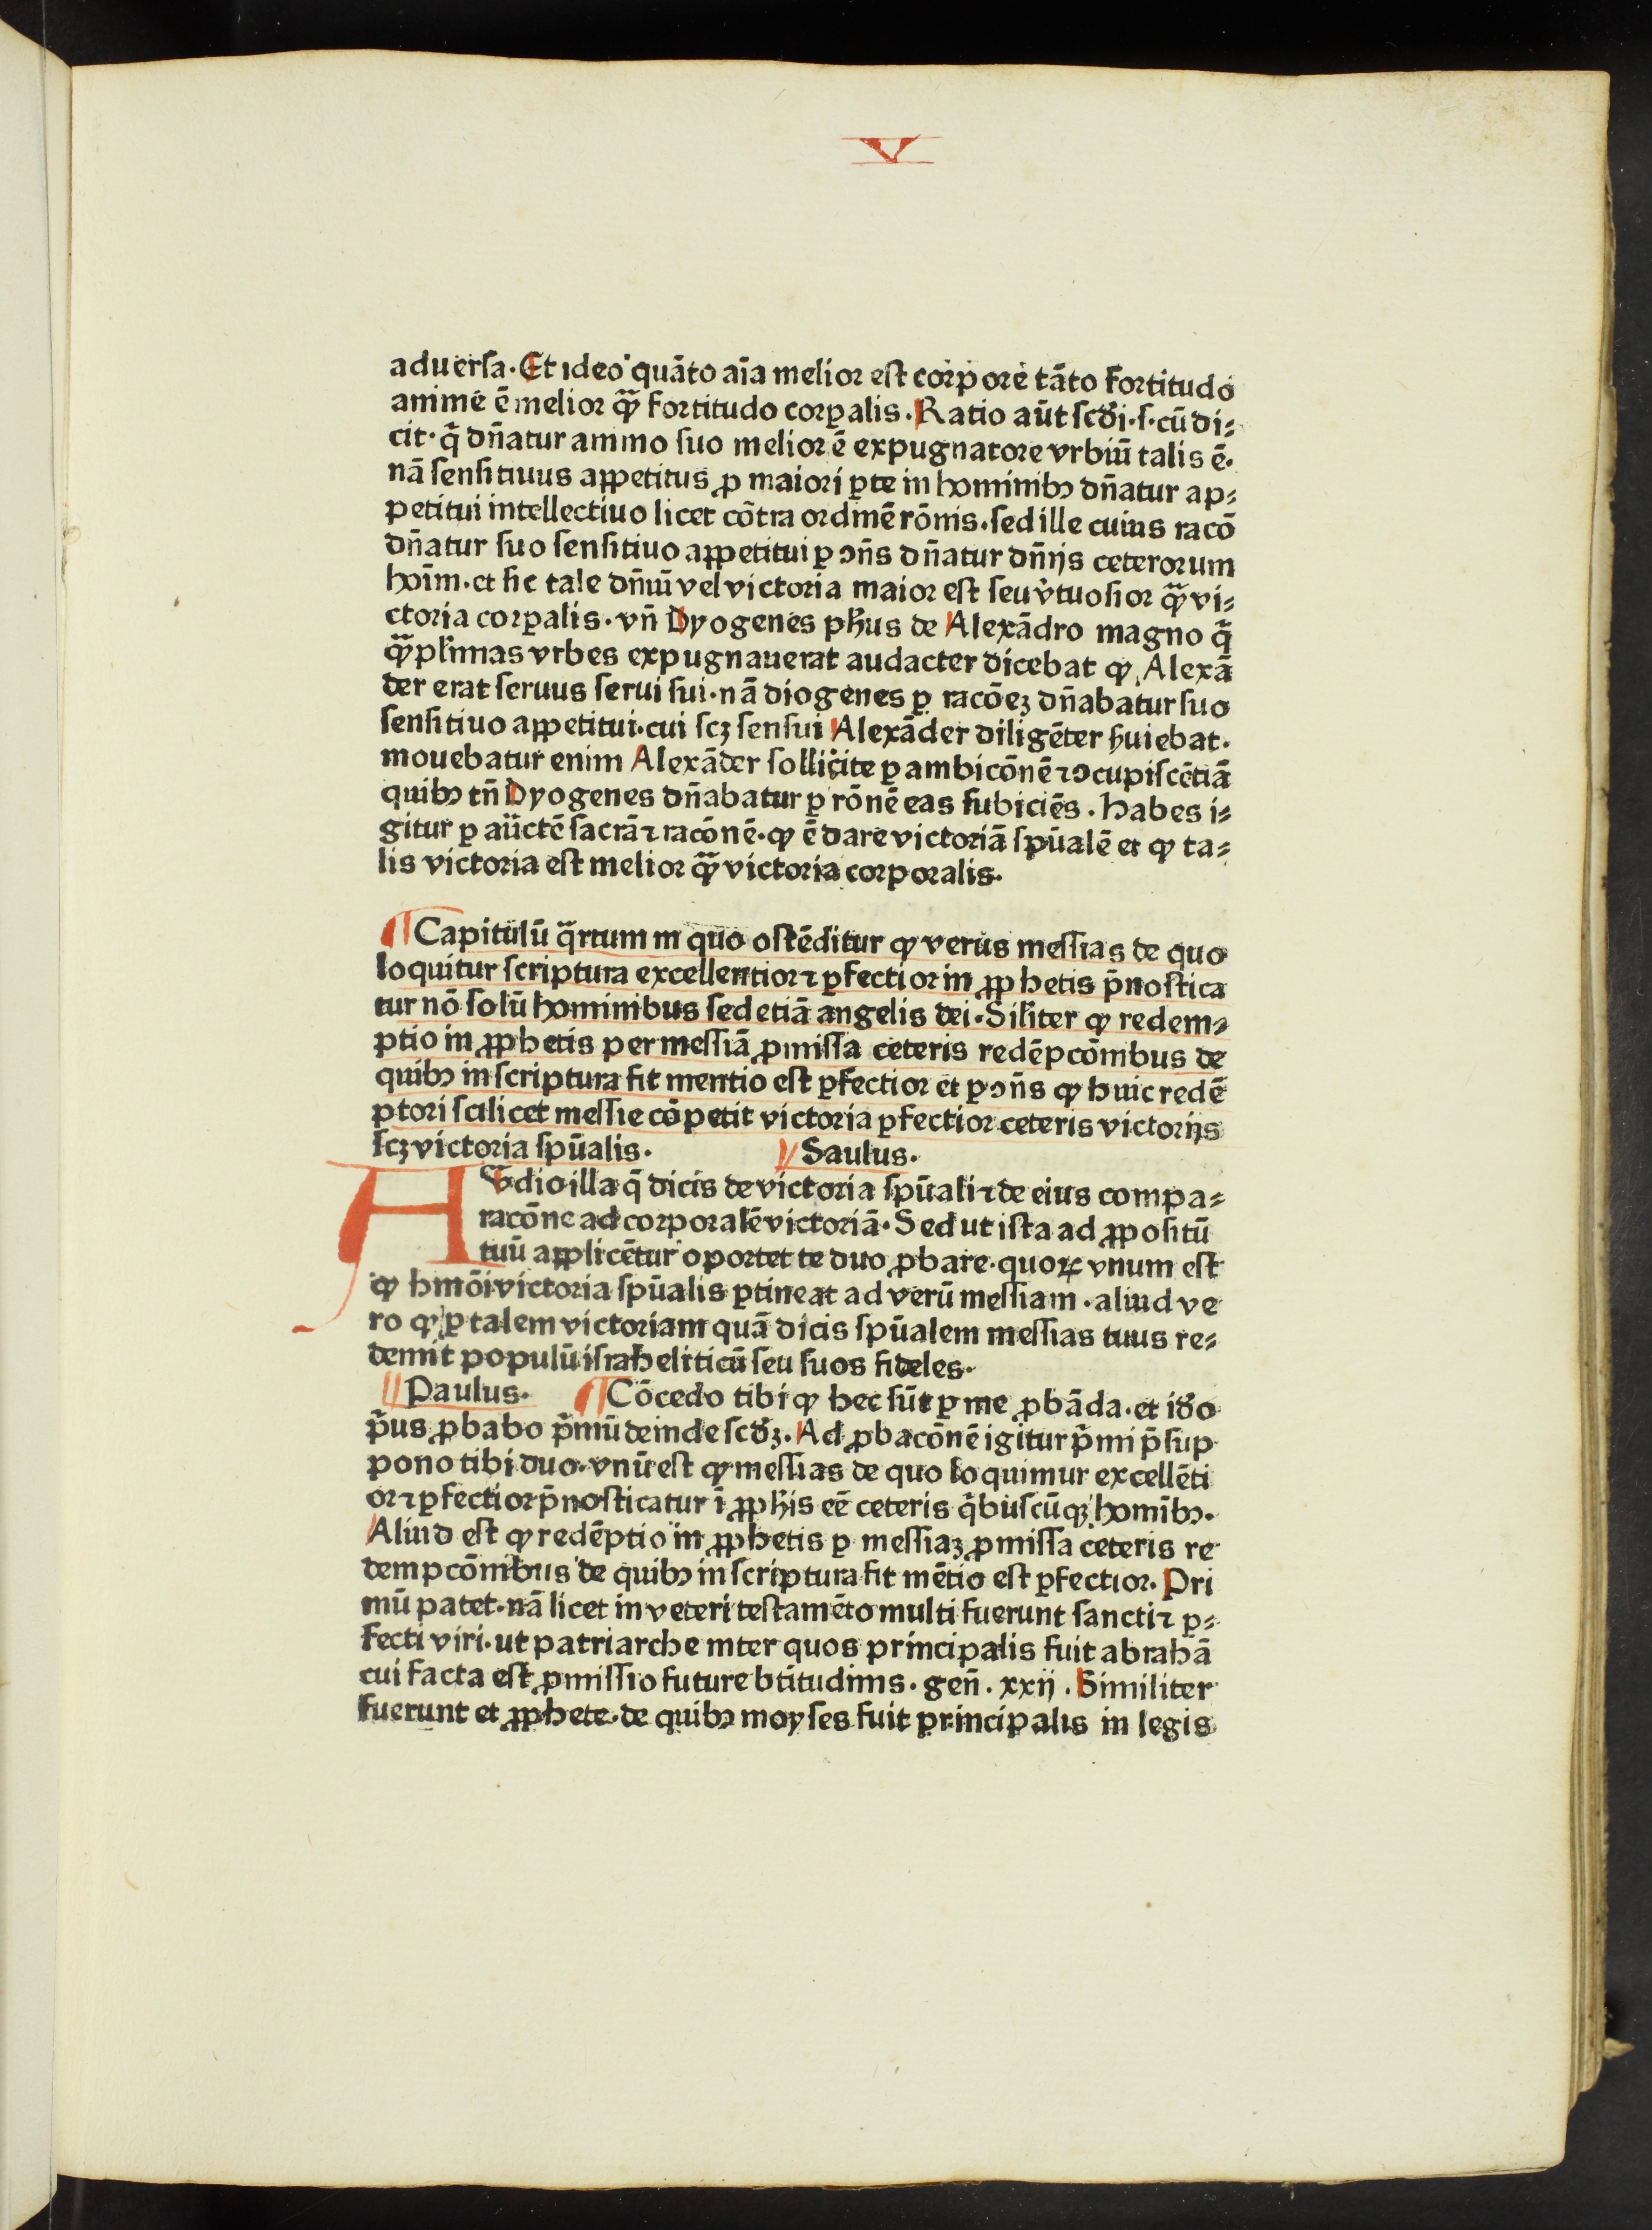 V
aduersa. Et ideo quãto aĩa melior est corpore tãto fortitudo
anime ẽ melior q̃ꝫ fortitudo corꝑalis. Ratio aũt scďi .s. cũ di⸗
cit. q̃ dñatur animo suo melior ẽ expugnatore vrbiũ talis ẽ.
nã sensitiuus appetitus ꝓ maiori ꝑte in hominibꝰ dñatur ap⸗
petitui intellectiuo licet cõtra ordinẽ rõnis. sed ille cuius racõ
dñatur suo sensitiuo appetitui ꝑ ↄñs dñatur dñijs ceterorum
hoĩm. et sic tale dñiũ vel victoria maior est seu v̓tuosior q̃ꝫ vi⸗
ctoria corꝑalis. vñ Dyogenes pħus de Alexãdro magno q̃
q̃ꝫ pl̓imas vrbes expugnauerat audacter dicebat ꝙ Alexã
der erat seruus serui sui. nã diogenes ꝑ racõeꝫ dñabatur suo
sensitiuo appetitui. cui scꝫ sensui Alexãder diligẽter ẜuiebat.
mouebatur enim Alexãder sollicite ꝑ ambicõnẽ ⁊ ↄcupiscẽtiã
quibꝰ tñ Dyogenes dñabatur ꝑ rõnẽ eas subiciẽs. Habes i⸗
gitur ꝑ auctẽ sacrã ⁊ racõnẽ. ꝙ ẽ dare victoriã spũalẽ et ꝙ ta⸗
lis victoria est melior q̃ꝫ victoria corporalis.
¶ Capitulũ q̃rtum in quo ostẽditur ꝙ verus messias de quo
loquitur scriptura excellentior ⁊ ꝑfectior in ꝓphetis p̃nostica
tur nõ solũ hominibus sed etiã angelis dei. Sil̓iter ꝙ redem⸗
ptio in ꝓphetis per messiã ꝓmissa ceteris redẽpcõnibus de
quibꝰ in scriptura fit mentio est ꝑfectior et ꝑ ↄñs ꝙ huic redẽ
ptori scilicet messie cõpetit victoria ꝑfectior ceteris victorijs
scꝫ victoria spũalis. Saulus.
Audio illa q̃ dicis de victoria spũali ⁊ de eius compa⸗
racõne ad corporalẽ victoriã. Sed ut ista ad ꝓpositũ
tuũ applicẽtur oportet te duo ꝓbare. quoꝝ vnum est
ꝙ hmõi victoria spũalis ꝑtineat ad verũ messiam. aliud ve
ro ꝙ ꝑ talem victoriam quã dicis spũalem messias tuus re⸗
demit populũ israheliticũ seu suos fideles.
Paulus. ¶ Cõcedo tibi ꝙ hec sũt ꝑ me ꝓbãda. et iďo
p̃us ꝓbabo p̃mũ deinde scďꝫ. Ad ꝓbacõnẽ igitur p̃mi p̃sup
pono tibi duo. vnũ est ꝙ messias de quo loquimur excellẽti
or ⁊ ꝑfectior p̃nosticatur ĩ ꝓpħis eẽ ceteris q̃buscũqꝫ homĩbꝰ.
Aliud est ꝙ redẽptio in ꝓphetis ꝑ messiaꝫ ꝓmissa ceteris re
dempcõnibus de quibꝰ in scriptura fit mẽtio est ꝑfectior. Pri
mũ patet. nã licet in veteri testamẽto multi fuerunt sancti ⁊ ꝑ⸗
fecti viri. ut patriarche inter quos principalis fuit abrahã
cui facta est ꝓmissio future btitudinis. geñ. xxij. Similiter
fuerunt et ꝓphete. de quibꝰ moyses fuit principalis in legis